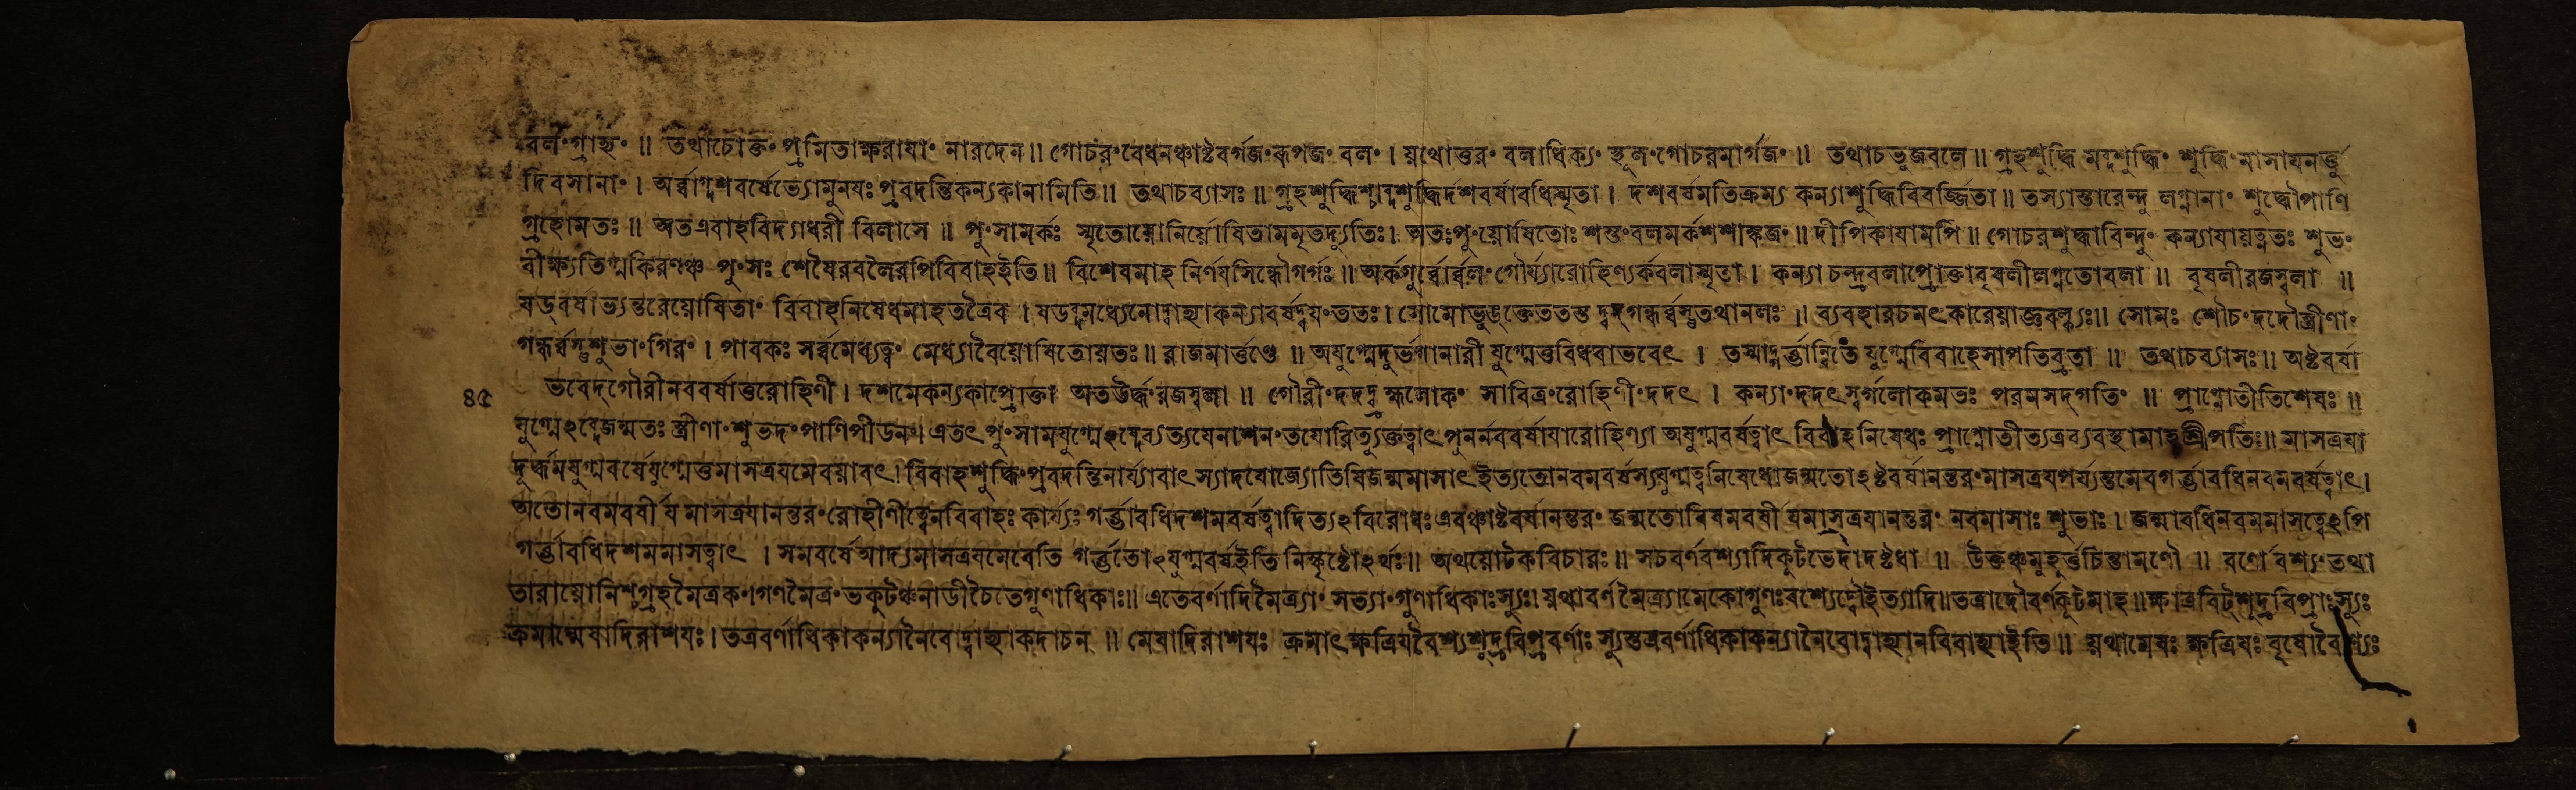 বলং গ্রাহ্যং ॥ তথাচোক্তং প্রমিতাক্ষরাযাং নারদেন ॥ গোচরংবেধনঞ্চাষ্টবর্গজং রূপজং বলং । যথোত্তরং বলাধিক্যং স্থূলংগোচরমার্গজং ॥ তথাচভুজবলে ॥ গ্রহশুদ্ধি মব্দশুদ্ধিং শুদ্ধিং মাসাযনর্ত্তু
দিবসানাং । অর্ব্বাগ্দশবর্ষেভ্যোমুনযঃ প্রবদন্তিকন্যকানামিতি ॥ তথাচব্যাসঃ ॥ গ্রহশুদ্ধিশ্চাব্দশুদ্ধির্দশবর্ষাবধিস্মৃতা । দশবর্ষমতিক্রম্য কন্যাশুদ্ধিবিবর্জ্জিতা ॥ তস্যাস্তারেন্দু লগ্নানাং শুদ্ধৌপাণি
গ্রহোমতঃ ॥ অতএবাহবিদ্যাধরী বিলাসে ॥ পুংসামর্কঃ স্মৃতোযোনির্যোষিতামমৃতদ্যুতিঃ। অতঃপুংযোষিতোঃ শস্তংবলমর্কশশাঙ্কজং ॥ দীপিকাযামপি ॥ গোচরশুদ্ধাবিন্দুং কন্যাযাযত্নতঃ শুভং
বীক্ষ্যতিগ্মকিরণঞ্চ পুংসঃ শেষৈরবলৈরপিবিবাহইতি ॥ বিশেষমাহ নির্ণযসিন্ধৌগর্গঃ ॥ অর্কগুর্ব্বোর্ব্বলংগৌর্য্যারোহিণ্যর্কবলাস্মৃতা । কন্যা চন্দ্রবলাপ্রোক্তাবৃষলীলগ্নতোবলা ॥ বৃষলীরজস্বলা ॥
ষড্বর্ষাভ্যন্তরেযোষিতাং বিবাহনিষেধমাহতত্রৈব । ষডব্দমধ্যেনোদ্বাহ্যাকন্যাবর্ষদ্বযংততঃ। সোমোভুঙ্ক্তেততস্ত দ্বদ্গন্ধর্ব্বস্তুতথানলঃ ॥ ব্যবহারচমৎকারেযাজ্ঞবল্ক্যঃ॥ সোমঃ শৌচংদদৌস্ত্রীণাং
গন্ধর্ব্বস্তুশুভাংগিরং । পাবকঃ সর্ব্বমেধ্যত্বং মেধ্যাবৈযোষিতোযতঃ ॥ রাজমার্ত্তণ্ডে ॥ অযুগ্মেদুর্ভগানারী যুগ্মেত্তবিধবাভবেৎ । তস্মাদ্গর্ভান্বিতে যুগ্মেবিবাহেসাপতিব্রতা ॥ তথাচব্যাসঃ॥ অষ্টবর্ষা
৪৫ ভবেদ্গৌরীনববর্ষাত্তরোহিণী । দশমেকন্যকাপ্রোক্তা অতউর্দ্ধংরজস্বলা ॥ গৌরীংদদদ্ব্রহ্মলোকং সাবিত্রংরোহিণীংদদৎ । কন্যাংদদৎস্বর্গলোকমতঃ পরমসদ্গতিং ॥ প্রাপ্নোতীতিশেষঃ ॥
যুগ্মেঽব্দেজন্মতঃ স্ত্রীণাং শুভদংপাণিপীডনং। এতৎ পুংসামযুগ্মেঽব্দেব্যত্যযেনাশনংতযোরিত্যুক্তত্বাৎপুনর্নববর্ষাযারোহিণ্যা অযুগ্মবর্ষত্বাৎ বিবাহনিষেধঃ প্রাপ্নোতীত্যত্রব্যবস্থামাহশ্রীপতিঃ॥ মাসত্রযা
দূর্দ্ধমযুগ্মবর্ষেযুগ্মেত্তমাসত্রযমেবযাবৎ। বিবাহশুদ্ধিংপ্রবদন্তি জন্মমাসাৎইত্যতোনবমবর্ষস্যযুগ্মত্বনিষেধোজন্মতোঽষ্টবর্ষানন্তরংমাসত্রযপর্য্যন্তমেবগর্ভাবধিনবমবর্ষত্বাৎ।
অতোনবমবর্ষীয মাসত্রযানন্তরংরোহীণীত্বেনবিবাহঃ কার্য্যঃ গর্ভাবধিদশমবর্ষত্বাদিত্যঽবিরোধঃএবঞ্চাষ্টবর্ষানন্তরং জন্মতোবিষমবর্ষীযমাসত্রযানন্তরং নবমাসাঃ শুভাঃ । জন্মাবধিনবমমাসত্বেঽপি
গর্ভাবধিদশমমাসত্বাৎ । সমবর্ষেআদ্যমাসত্রযমেবেতি গর্ভতোঽযুগ্মবর্ষইতি নিষ্কৃষ্টোঽর্থঃ॥ অথযোটকবিচারঃ॥ সচবর্ণবশ্যাদিকূটভেদাদষ্টধা ॥ উক্তঞ্চমুহূর্ত্তচিন্তামণৌ ॥ বর্ণোবশ্যংতথা
তারাযোনিশ্চগ্রহমৈত্রকং।গণমৈত্রংভকূটঞ্চনাডীচৈতেগুণাধিকাঃ॥ এতেবর্ণাদিমৈত্র্যাং সত্যাংগুণাধিকাঃস্যুঃ। যথাবর্ণ মৈত্র্যামেকোগুণঃবশ্যেদ্বৌইত্যাদি॥তত্রাদৌবর্ণকূটমাহ॥ক্ষত্রবিট্শূদ্রবিপ্রাঃস্যুঃ
ক্রমান্মেষাদিরাশযঃ। তত্রবর্ণাধিকাকন্যানৈবোদ্বাহ্যাকদাচন ॥ মেষাদিরাশযঃ ক্রমাৎক্ষত্রিযবৈশ্যশূদ্রবিপ্রবর্ণাঃ স্যুস্তত্রবর্ণাধিকাকন্যানৈবোদ্বাহ্যানবিবাহ্যাইতি ॥ যথামেষঃ ক্ষত্রিযঃ বৃষোবৈশ্যঃ